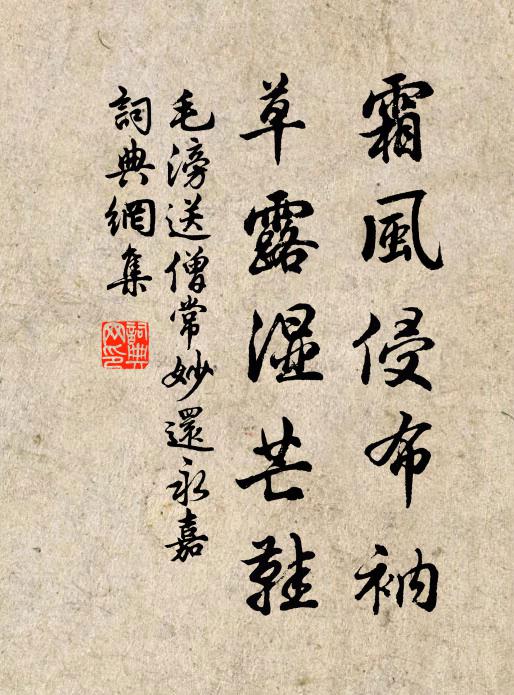 霜風侵布衲
草露湿芒鞋
毛滂送僧常妙還永嘉
詞典網集
詞典網印